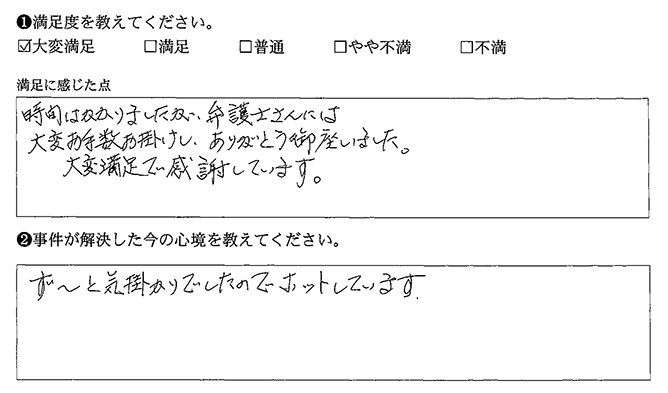 ❶満足度を教えてください。
☑大変満足 ☐満足 ☐普通 ☐やや不満 ☐不満
満足に感じた点
時間はかかりましたが、弁護士さんには
大変お手数お掛けし、ありがとう御座いました。
大変満足で感謝しています。
❷事件が解決した今の心境を教えてください。
ず〜と気掛かりでしたのでホットしています.